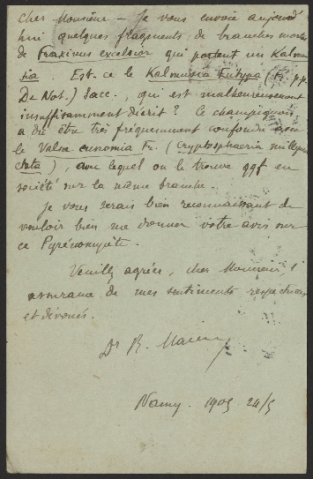 Cher Monsieur – Je vous envoie aujourd'
hui quelques fragments de branches mortes
de Fraxinus excelsior qui portent un Kalmu
sia. Est-ce le Kalmusia Eutypa (Fr. p.p.
De Not.) Sacc., qui est malheureusement
insuffisamment décrit? Le champignon
a dû être très fréquemment confondu avec
le Valsa eunomia Fr. (Cryptosphaeria millepun
ctata), avec lequel on le trouve qqf en
société sur la même branche.
Je vous serais bien reconnaissant de
vouloir bien me donner votre avis sur
ce Pyrénomycète.
Veuillez agréer, cher Monsieur, l'
assurance de mes sentiments respectueux
et dévoués.
Dr R. Maire
Nancy. 1905 24/5